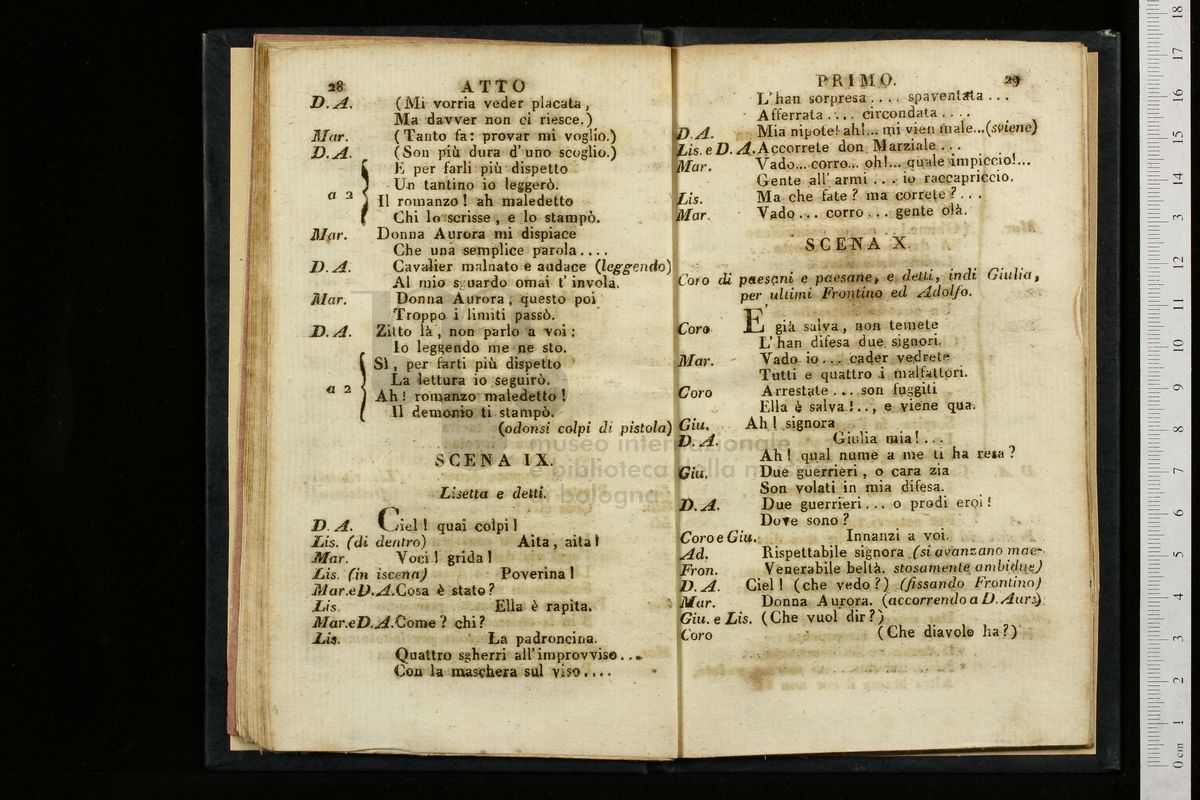 28 ATTO
D. A. (Mi vorria veder placata,
Ma davver non ci riesce.)
Mar. (Tanto fa: provar mi voglio.)
D. A. (Son più dura d'uno scoglio.)
E per farli più dispetto
Un tantino io leggerò.
a 2 Il romanzo! ah maledetto
Chi lo scrisse, e lo stampò.
Mar. Donna Aurora mi dispiace
Che una semplice parola....
D. A. Cavalier malnato e audace (leggendo)
Al mio sguardo omai t'invola.
Mar. Donna Aurora, questo poi
Troppo i limiti passò.
D. A. Zitto là, non parlo a voi:
Io leggendo me ne sto.
Sì, per farti più dispetto
La lettura io seguirò.
a 2 Ah! romanzo maledetto!
Il demonio ti stampò.
(odonsi colpi di pistola)
SCENA IX.
Lisetta e detti.
D. A. Ciel! quai colpi!
Lis. (di dentro) Aita, aita!
Mar. Voci! grida!
Lis. (in iscena) Poverina!
Mar. e D. A. Cosa è stato?
Lis. Ella è rapita.
Mar. e D. A. Come? chi?
Lis. La padroncina.
Quattro sgherri all'improvviso...
Con la maschera sul viso....
PRIMO. 29
L'han sorpresa.... spaventata...
Afferrata.... circondata....
D. A. Mia nipote! ah!... mi vien male...(sviene)
Lis. e D. A. Accorrete don Marziale...
Mar. Vado... corro... oh!... quale impiccio!...
Gente all'armi... io raccapriccio.
Lis. Ma che fate? ma correte?...
Mar. Vado... corro... gente olà.
SCENA X.
Coro di paesani e paesane, e detti, indi Giulia,
per ultimi Frontino ed Adolfo.
Coro E' già salva, non temete
L'han difesa due signori.
Mar. Vado io... cader vedrete
Tutti e quattro i malfattori.
Coro Arrestate... son fuggiti
Ella è salva!.., e viene qua.
Giu. Ah! signora
D. A. Giulia mia!...
Ah! qual nume a me ti ha resa?
Giu. Due guerrieri, o cara zia
Son volati in mia difesa.
D. A. Due guerrieri... o prodi eroi!
Dove sono?
Coro e Giu. Innanzi a voi.
Ad. Rispettabile signora (si avanzano mae-
Fron. Venerabile beltà. stosamente ambidue)
D. A. Ciel! (che vedo?) (fissando Frontino)
Mar. Donna Aurora. (accorrendo a D. Aur.)
Giu. e Lis. (Che vuol dir?)
Coro (Che diavolo ha?)
museo internazionale
e biblioteca della musica
bologna
0 cm 1 2 3 4 5 6 7 8 9 10 11 12 13 14 15 16 17 18